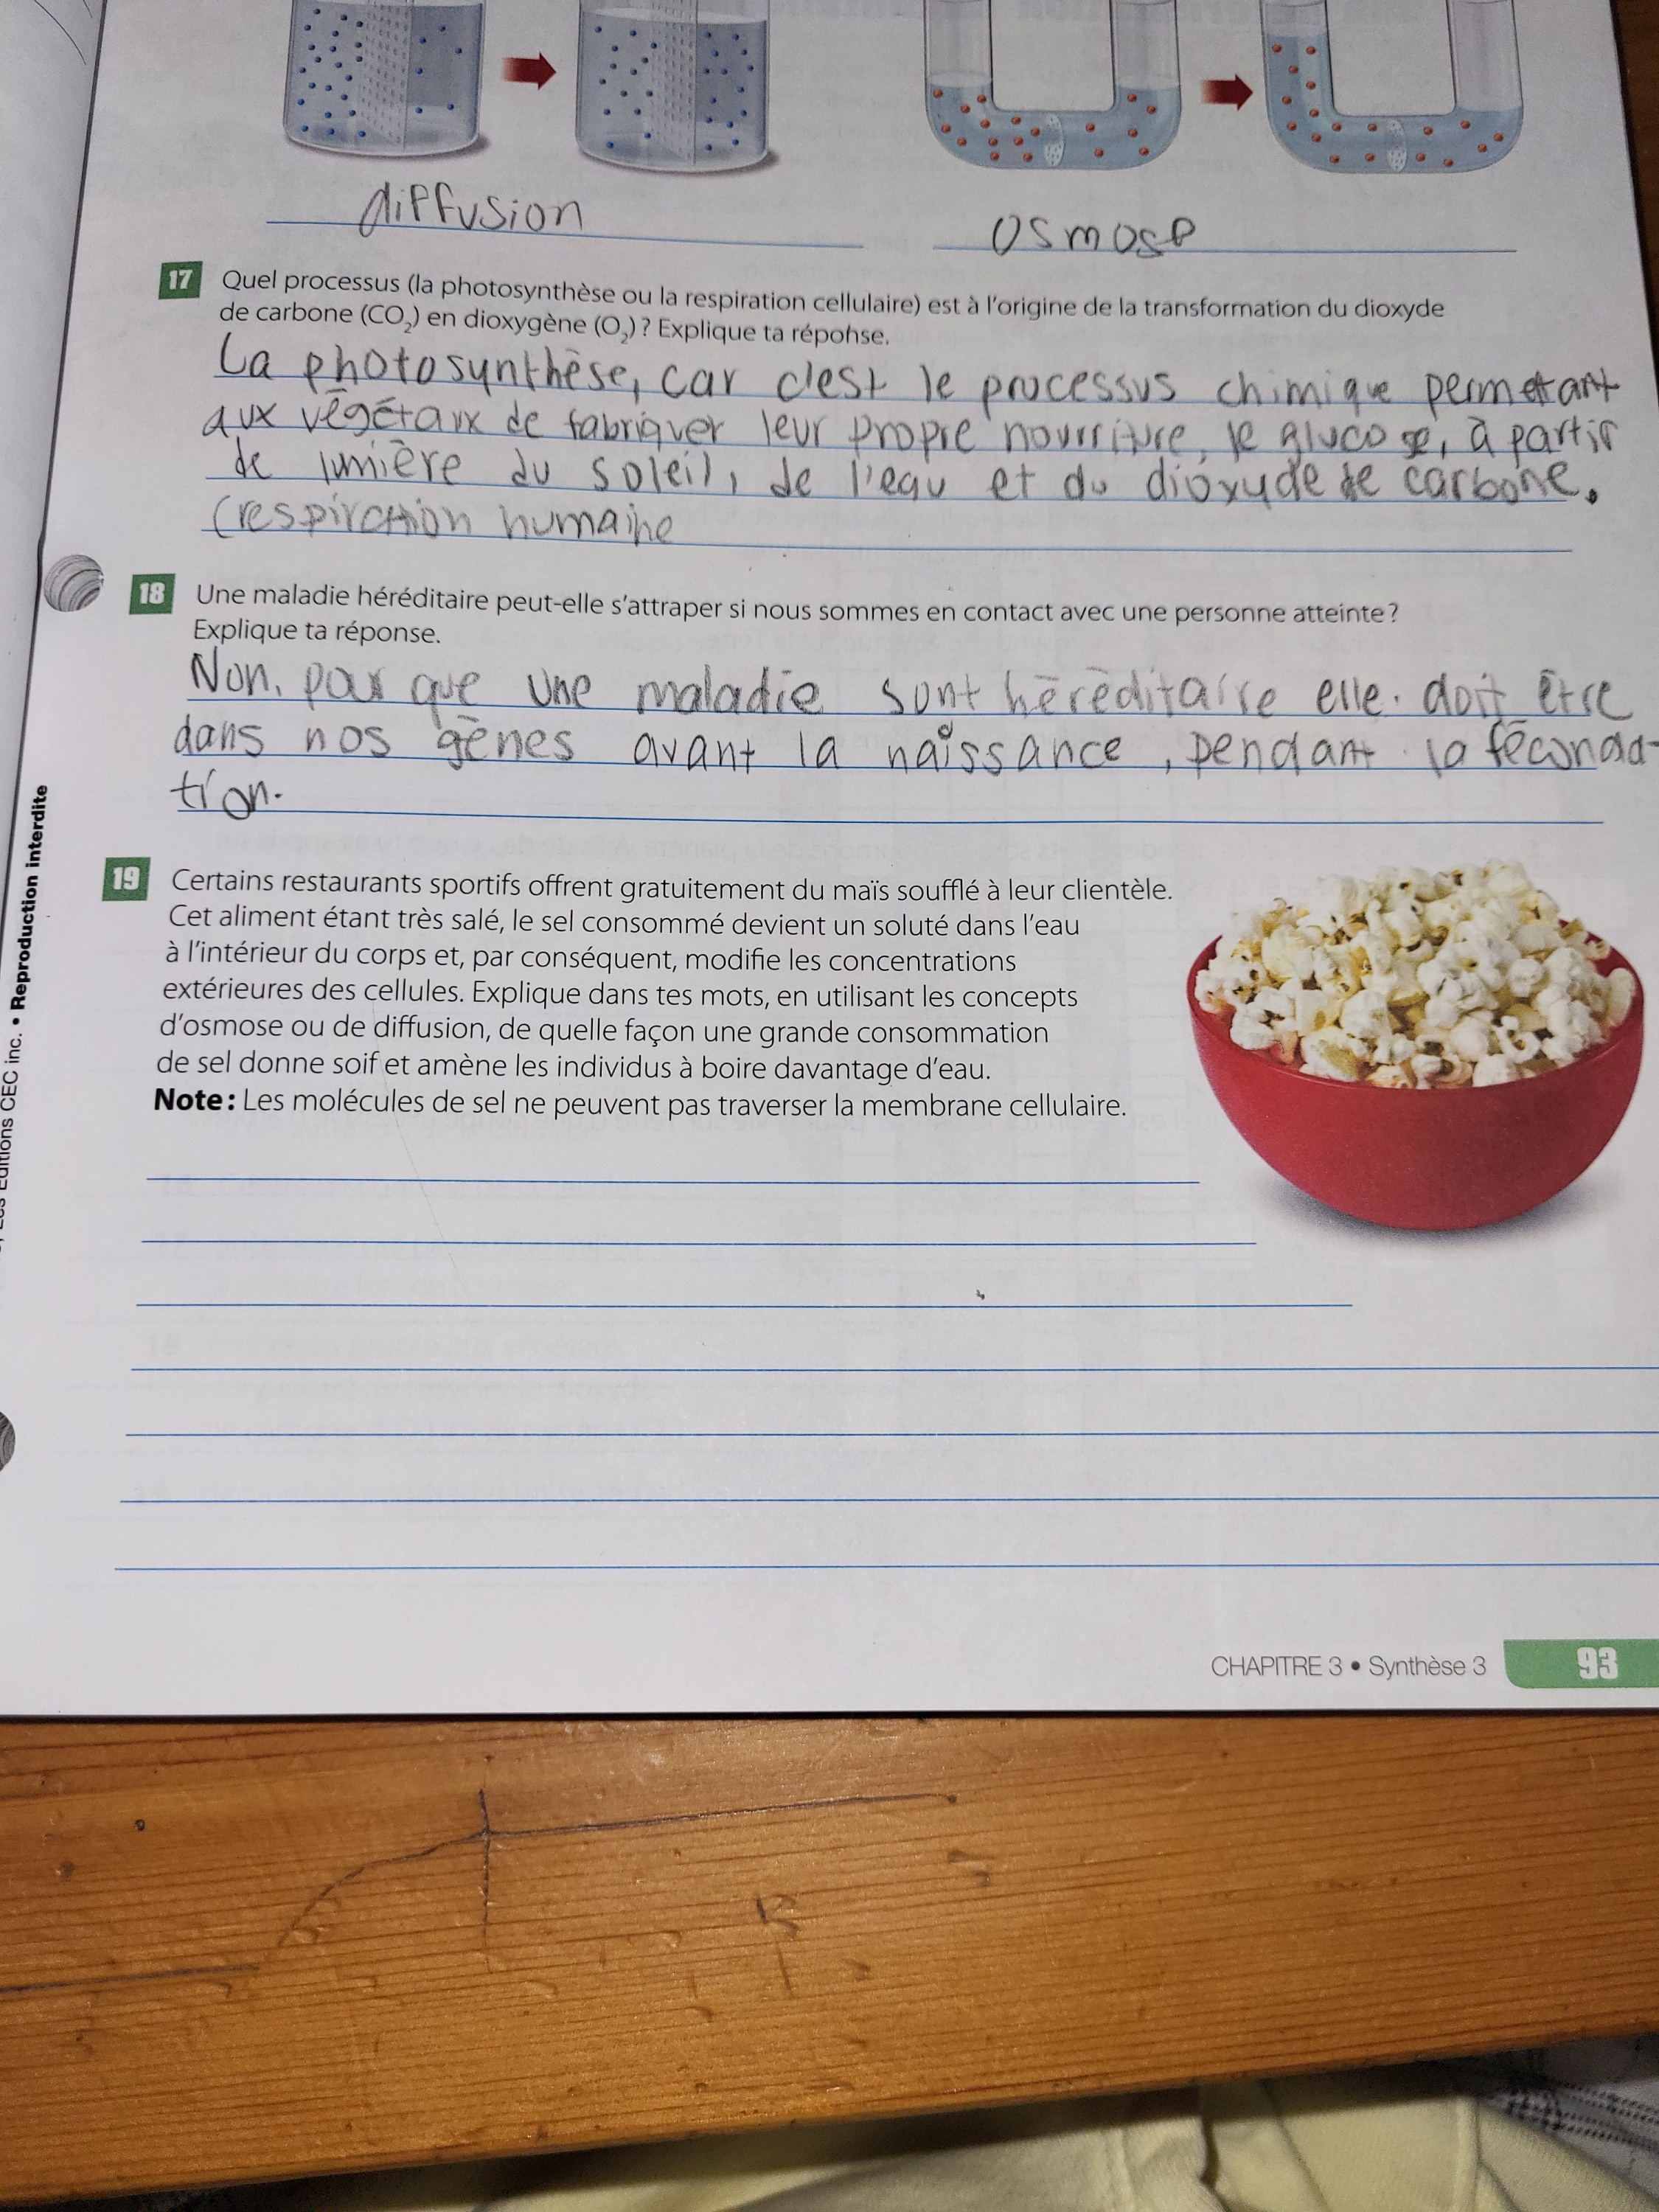 diffusion
osmose
17 Quel processus (la photosynthèse ou la respiration cellulaire) est à l'origine de la transformation du dioxyde
de carbone (CO₂) en dioxygène (O₂) ? Explique ta réponse.
La photosynthèse, car c'est le processus chimique permettant
aux végétaux de fabriquer leur propre nourriture, le glucose, à partir
de lumière du soleil, de l'eau et du dioxyde de carbone.
(respiration humaine
18 Une maladie héréditaire peut-elle s'attraper si nous sommes en contact avec une personne atteinte ?
Explique ta réponse.
Non, pour que une maladie sont héréditaire elle doit être
dans nos gènes avant la naissance, pendant la féconda-
tion.
19 Certains restaurants sportifs offrent gratuitement du maïs soufflé à leur clientèle.
Cet aliment étant très salé, le sel consommé devient un soluté dans l'eau
à l'intérieur du corps et, par conséquent, modifie les concentrations
extérieures des cellules. Explique dans tes mots, en utilisant les concepts
d'osmose ou de diffusion, de quelle façon une grande consommation
de sel donne soif et amène les individus à boire davantage d'eau.
Note : Les molécules de sel ne peuvent pas traverser la membrane cellulaire.
Les Éditions CEC inc. • Reproduction interdite
CHAPITRE 3 • Synthèse 3 93